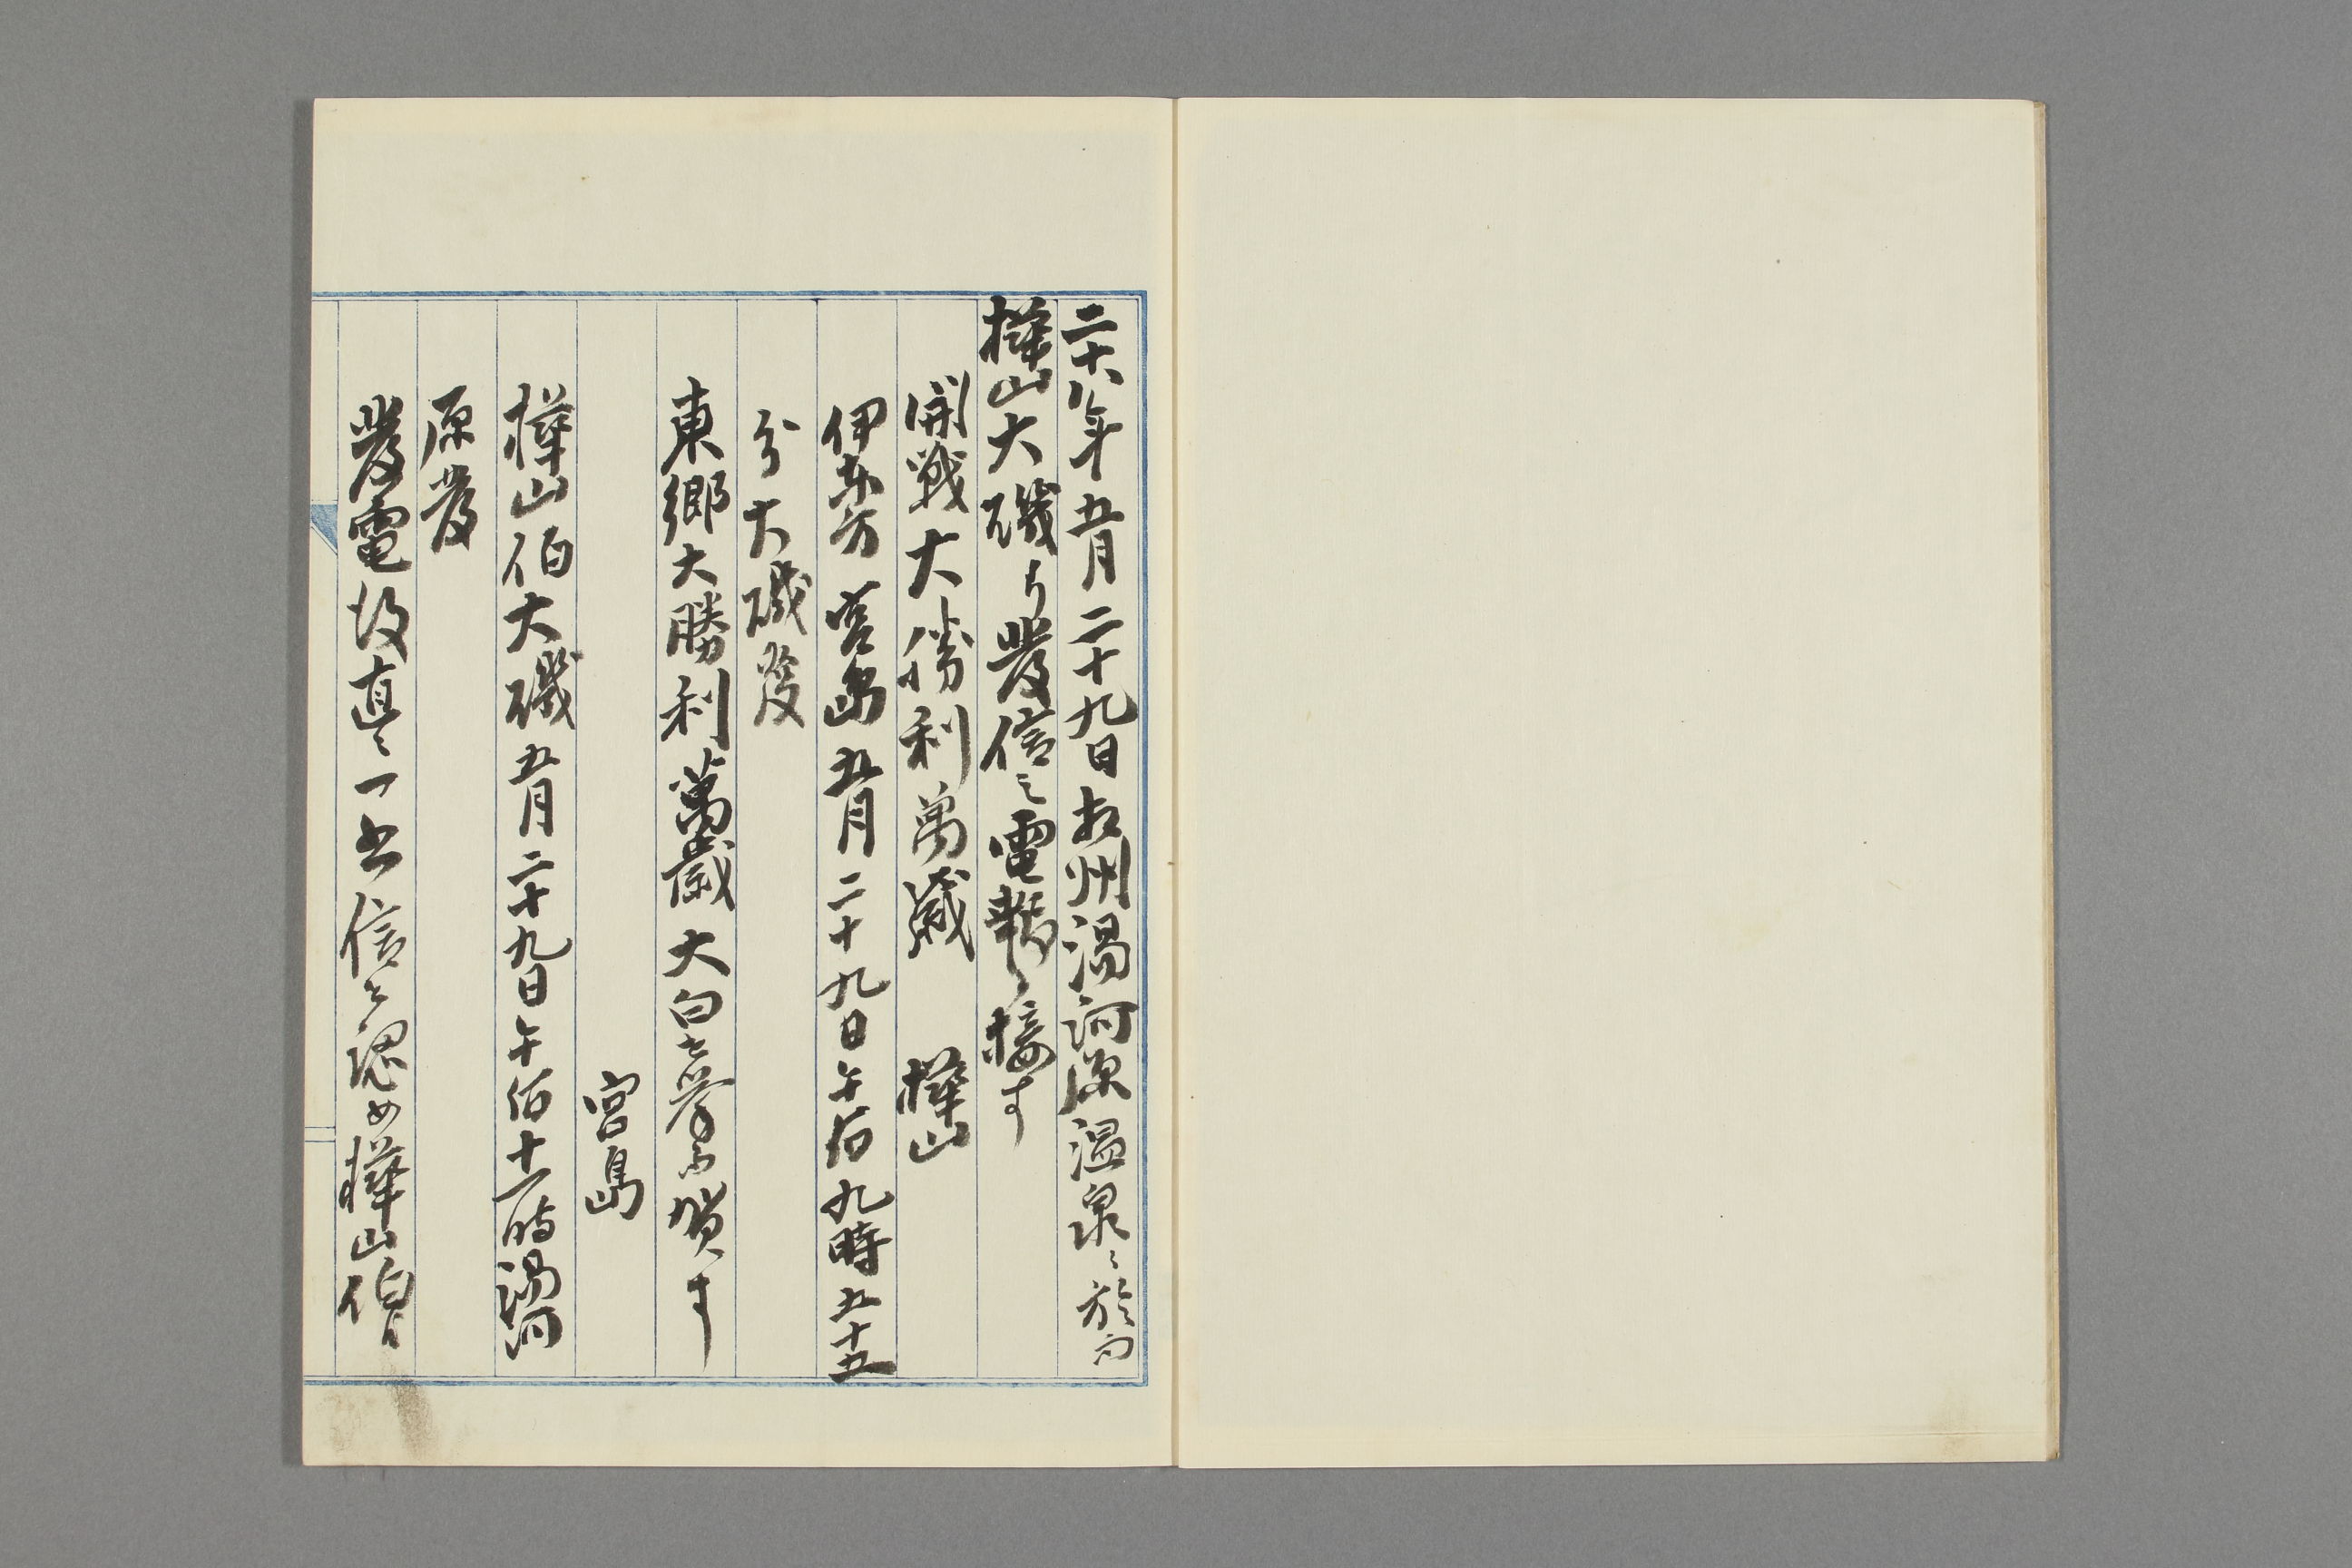 二十八年五月二十九日相州湯河原温泉ニ於而
樺山大磯ゟ發信之電報ニ接す
開戦大勝利萬歳　樺山
伊東方　宮島　五月二十九日午后九時五十五
分大磯發
東郷大勝利萬歳大白を挙ケ賀す
宮島
樺山伯大磯五月二十九日午后十一時湯河
原發
發電後直ニ一書信を認め樺山伯